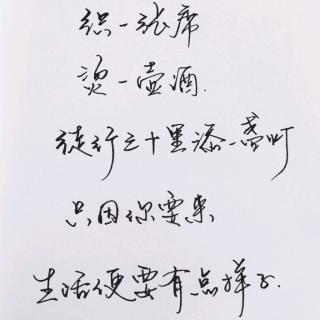 织一张席
烫一壶酒.
徒行三十里添一盏灯
只因你要来
生活便要有点样子.